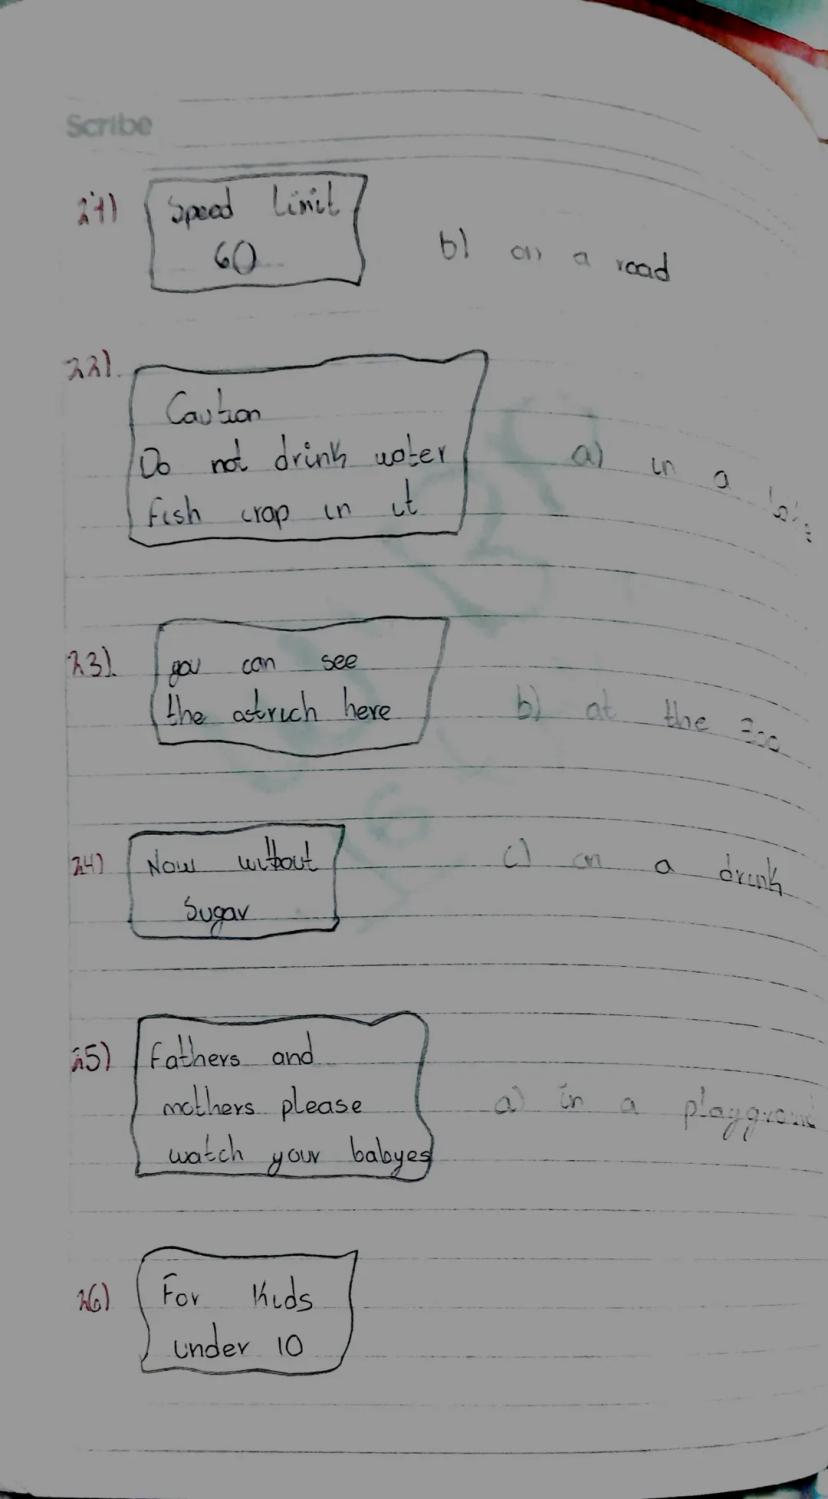 Scribe
21) Speed Limit
60
b) on a road
22).
Caution
Do not drink water
fish crap in it
a) in a
23). you can see
the ostrich here
b) at the zoo
24) Now without
Sugar
c) on a drink
25) Fathers and
mothers please
watch your babyes
a) in a playground
26) For Kids
under 10